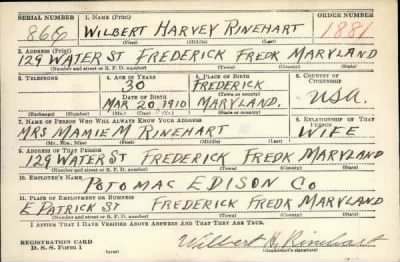 SERIAL NUMBER 1. NAME (Print) ORDER NUMBER
866 WILBERT HARVEY RINEHART 1881
(First) (Middle) (Last)
2. ADDRESS (Print)
129 WATER ST FREDERICK FREDK MARYLAND
(Number and street or R. F. D. number) (Town) (County) (State)
3. TELEPHONE 4. AGE IN YEARS 5. PLACE OF BIRTH 6. COUNTRY OF CITIZENSHIP
30 FREDERICK
(Town or county)
DATE OF BIRTH
MAR 20 1910 MARYLAND. USA.
(Exchange) (Number) (Mo.) (Day) (Yr.) (State or country)
7. NAME OF PERSON WHO WILL ALWAYS KNOW YOUR ADDRESS 8. RELATIONSHIP OF THAT PERSON
MRS MAMIE M RINEHART WIFE
(Mr., Mrs., Miss) (First) (Middle) (Last)
9. ADDRESS OF THAT PERSON
129 WATER ST FREDERICK FREDK MARYLAND
(Number and street or R. F. D. number) (Town) (County) (State)
10. EMPLOYER'S NAME
POTOMAC EDISON CO
11. PLACE OF EMPLOYMENT OR BUSINESS
E PATRICK ST FREDERICK FREDK MARYLAND
(Number and street or R. F. D. number) (Town) (County) (State)
I AFFIRM THAT I HAVE VERIFIED ABOVE ANSWERS AND THAT THEY ARE TRUE.
REGISTRATION CARD
D. S. S. Form 1
Wilbert H. Rinehart